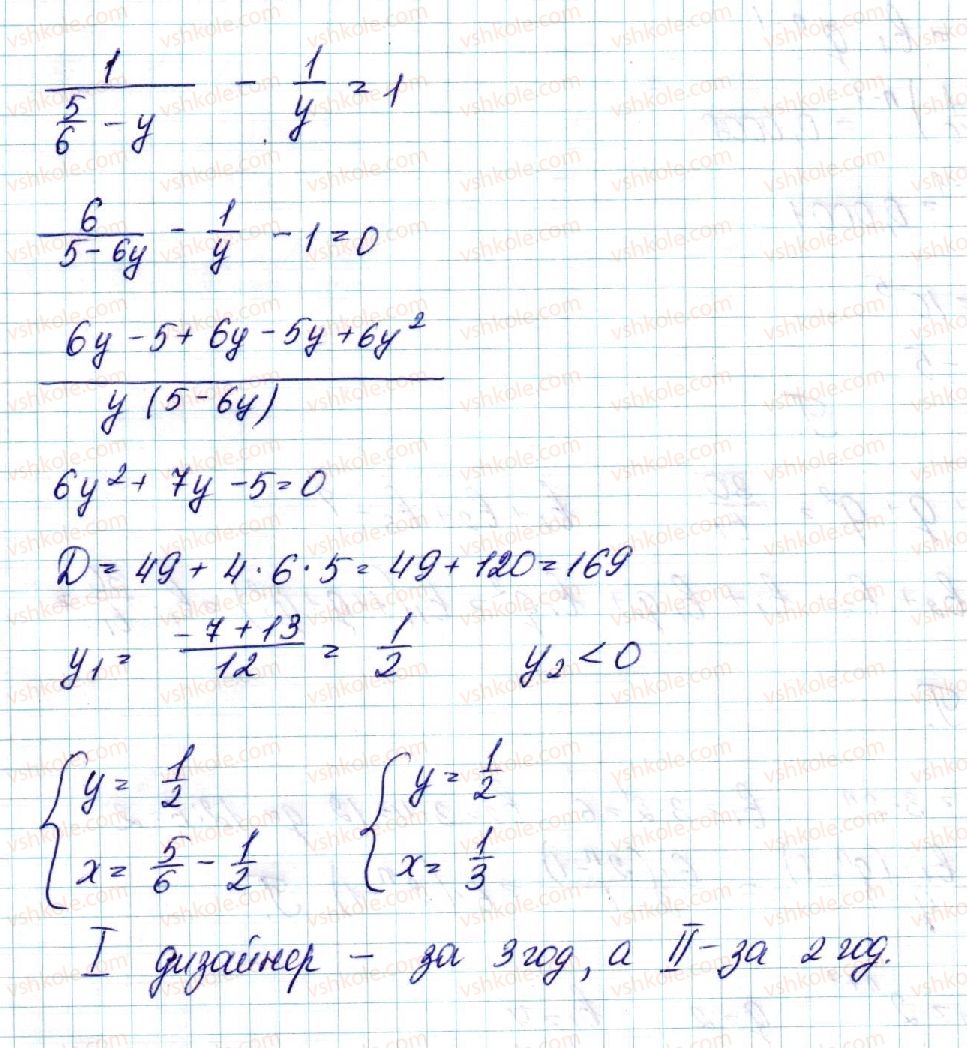 1/(5/6 - y) - 1/y = 1
6/(5 - 6y) - 1/y - 1 = 0
(6y - 5 + 6y - 5y + 6y²)/(y(5 - 6y))
6y² + 7y - 5 = 0
D = 49 + 4 · 6 · 5 = 49 + 120 = 169
y₁ = (-7 + 13)/12 = 1/2 y₂ < 0
{ y = 1/2 { y = 1/2
x = 5/6 - 1/2 x = 1/3
I дизайнер – за 3 год, а II – за 2 год.
vshkole.com